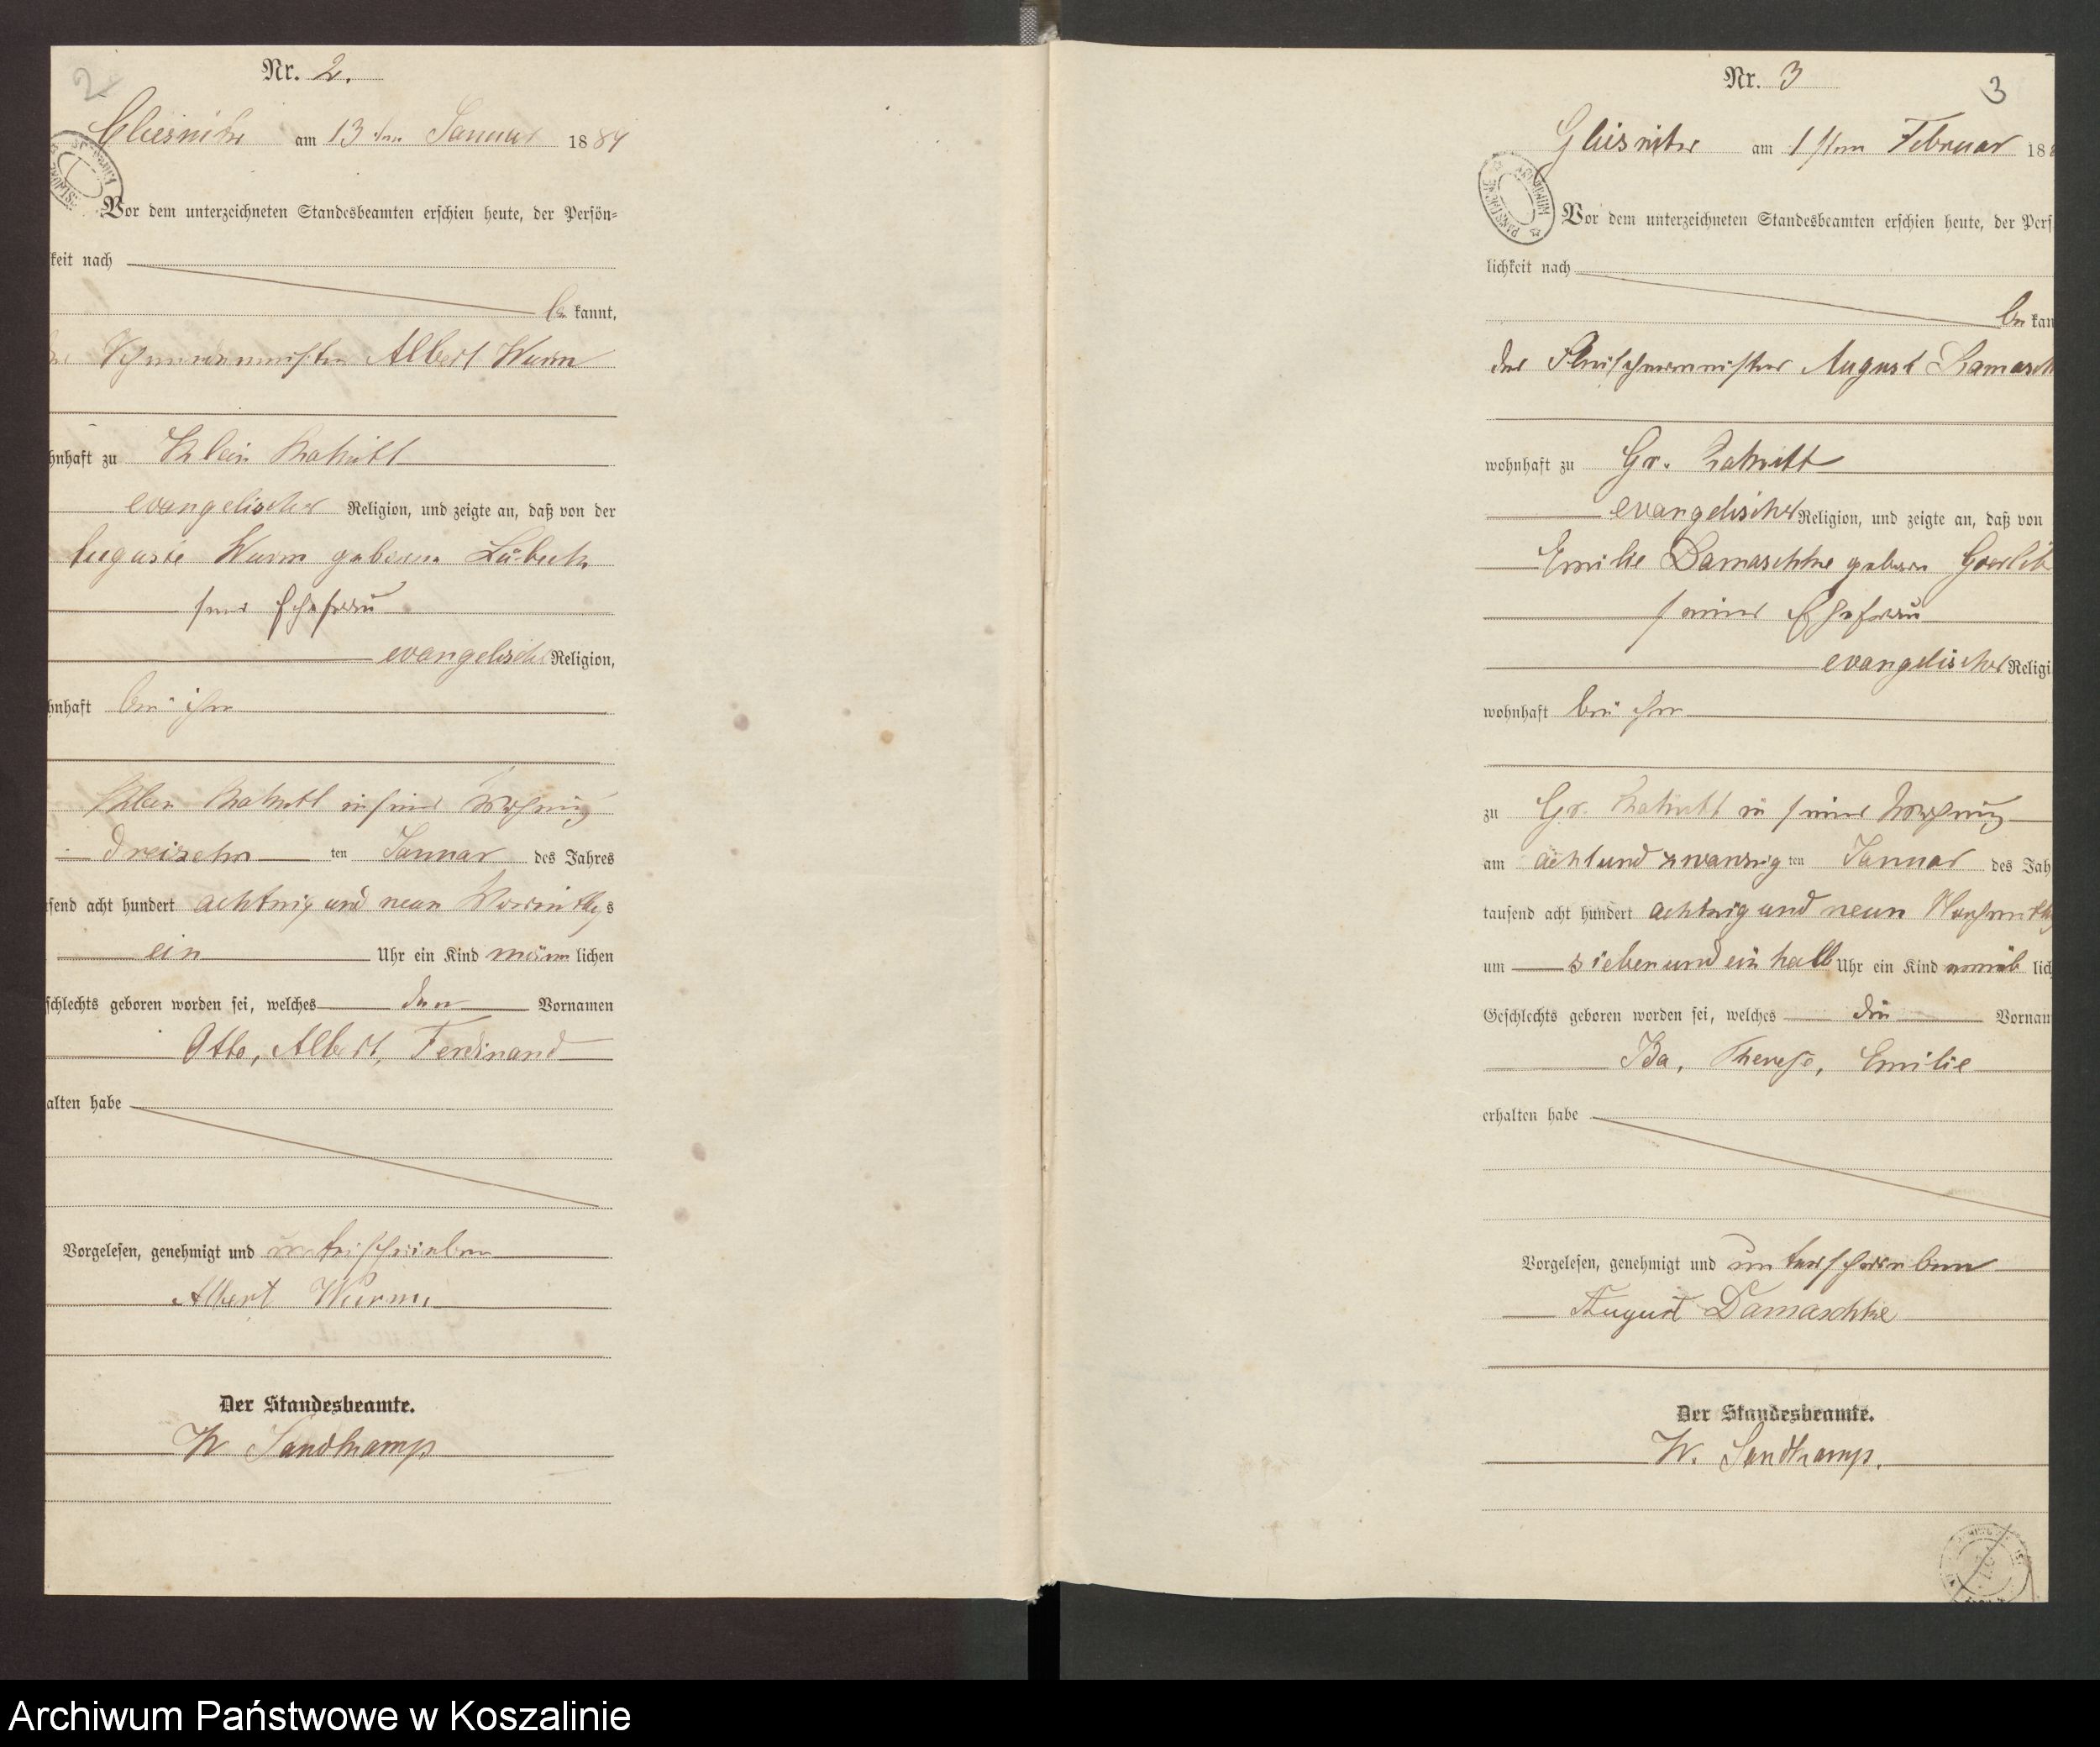 2
Nr. 2.
Gliesnitz am 13ten Januar 1889
Vor dem unterzeichneten Standesbeamten erschien heute, der Persön-
keit nach
be kannt,
Albert Wurm
hnhaft zu Klein Rakitt
evangelischer Religion, und zeigte an, daß von der
Auguste Wurm geborene
seiner Ehefrau
evangelischer Religion,
hnhaft bei ihm
Klein Rakitt in seiner Wohnung
dreizehn ten Januar des Jahres
usend acht hundert achtzig und neun Vormittags
ein Uhr ein Kind männ lichen
schlechts geboren worden sei, welches den Vornamen
Otto, Albert, Ferdinand
alten habe
Vorgelesen, genehmigt und unterschrieben
Albert Wurm.
Der Standesbeamte.
W Sandkamp
Nr. 3
3
Gliesnitz am 1sten Februar 188
Vor dem unterzeichneten Standesbeamten erschien heute, der Pers
lichkeit nach
be kan
der Fleischermeister August Damasch
wohnhaft zu Gr. Rakitt
evangelischer Religion, und zeigte an, daß von
Emilie Damaschke geborene
seiner Ehefrau
evangelischer Religi
wohnhaft bei ihm
zu Gr. Rakitt in seiner Wohnung
am achtundzwanzig ten Januar des Jah
tausend acht hundert achtzig und neun
um sieben und ein halb Uhr ein Kind weib lich
Geschlechts geboren worden sei, welches die Vornam
Ida, Therese, Emilie
erhalten habe
Vorgelesen, genehmigt und unterschrieben
August Damaschke
Der Standesbeamte.
W. Sandkamp.
Archiwum Państwowe w Koszalinie